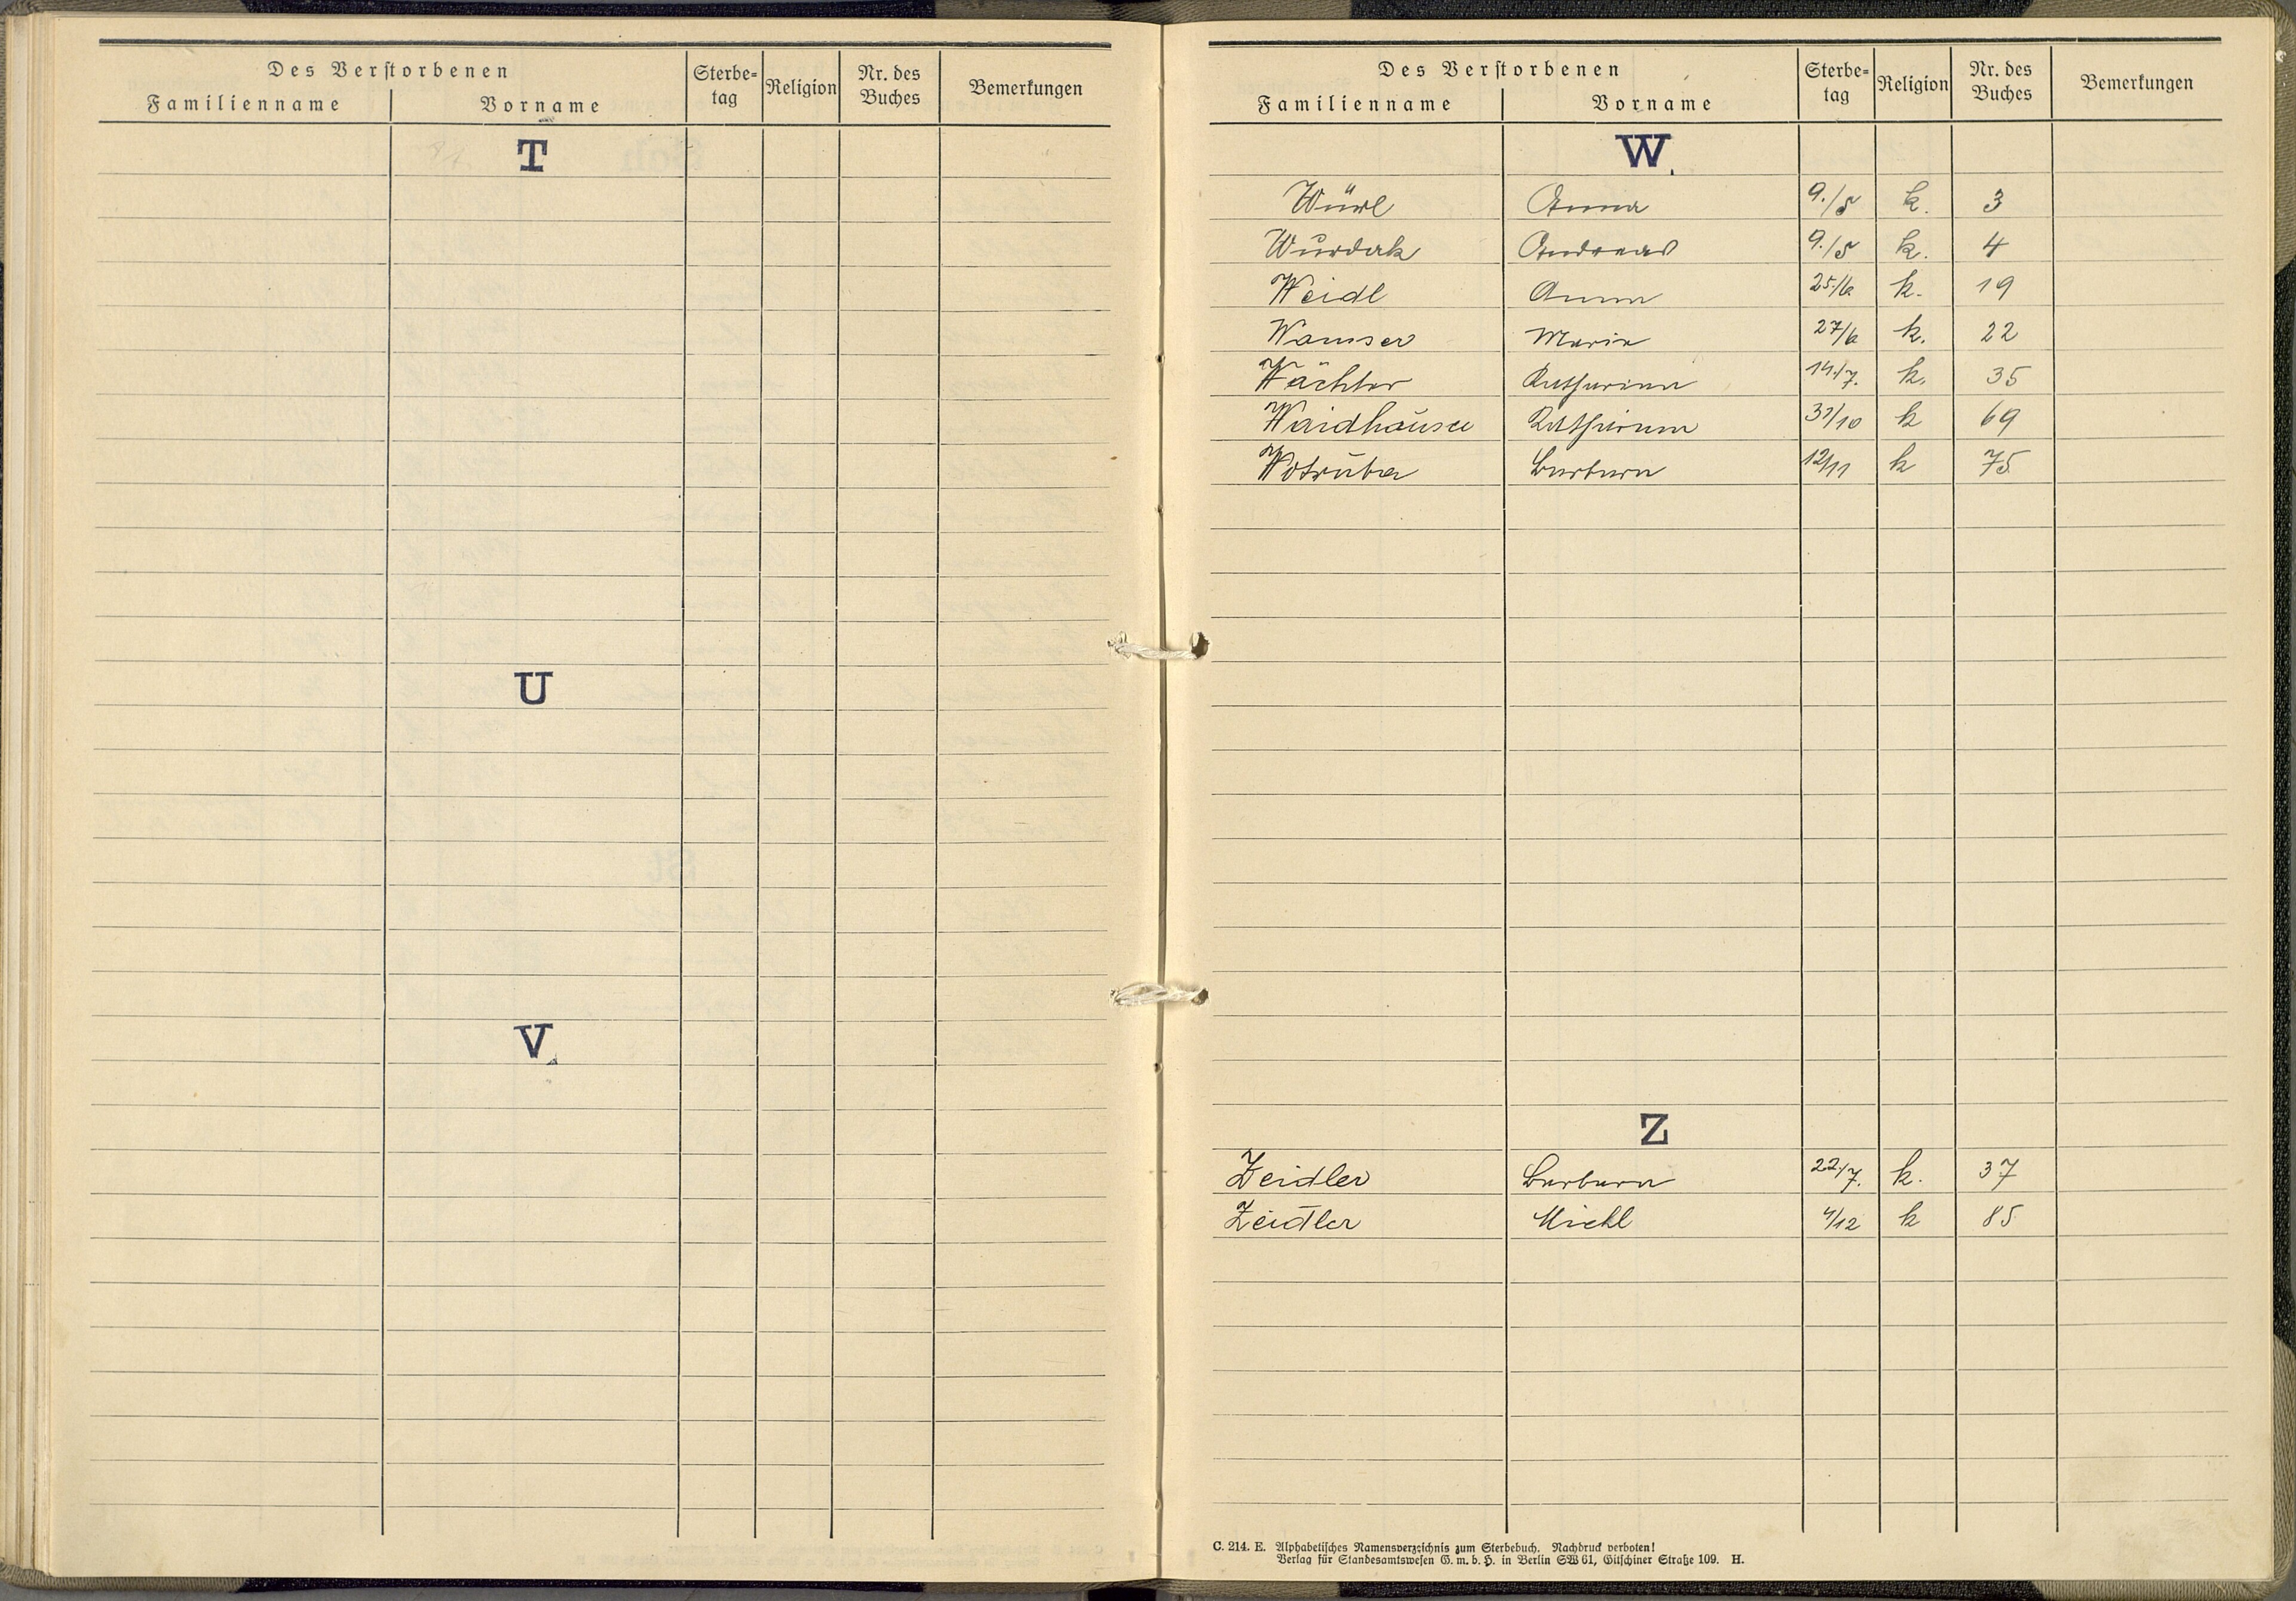 Des Verstorbenen
Familienname Vorname Sterbe-tag Religion Nr. des Buches Bemerkungen
T
U
V
Des Verstorbenen
Familienname Vorname Sterbe-tag Religion Nr. des Buches Bemerkungen
W.
Würl Anna 9./5 k. 3
Wurdak Andreas 9./5 k. 4
Weidl Anna 25./6. k. 19
Wamser Maria 27/6 k. 22
Wächter Katharina 14./7. k. 35
Waidhauser Katharina 31/10 k 69
Wotruba Barbara 12/11 k 75
Z
Zeidler Barbara 22./7. k. 37
Zeidler Michl 4/12 k 85
C. 214. E. Alphabetisches Namensverzeichnis zum Sterbebuch. Nachdruck verboten!
Verlag für Standesamtswesen G. m. b. H. in Berlin SW 61, Gitschiner Straße 109. H.